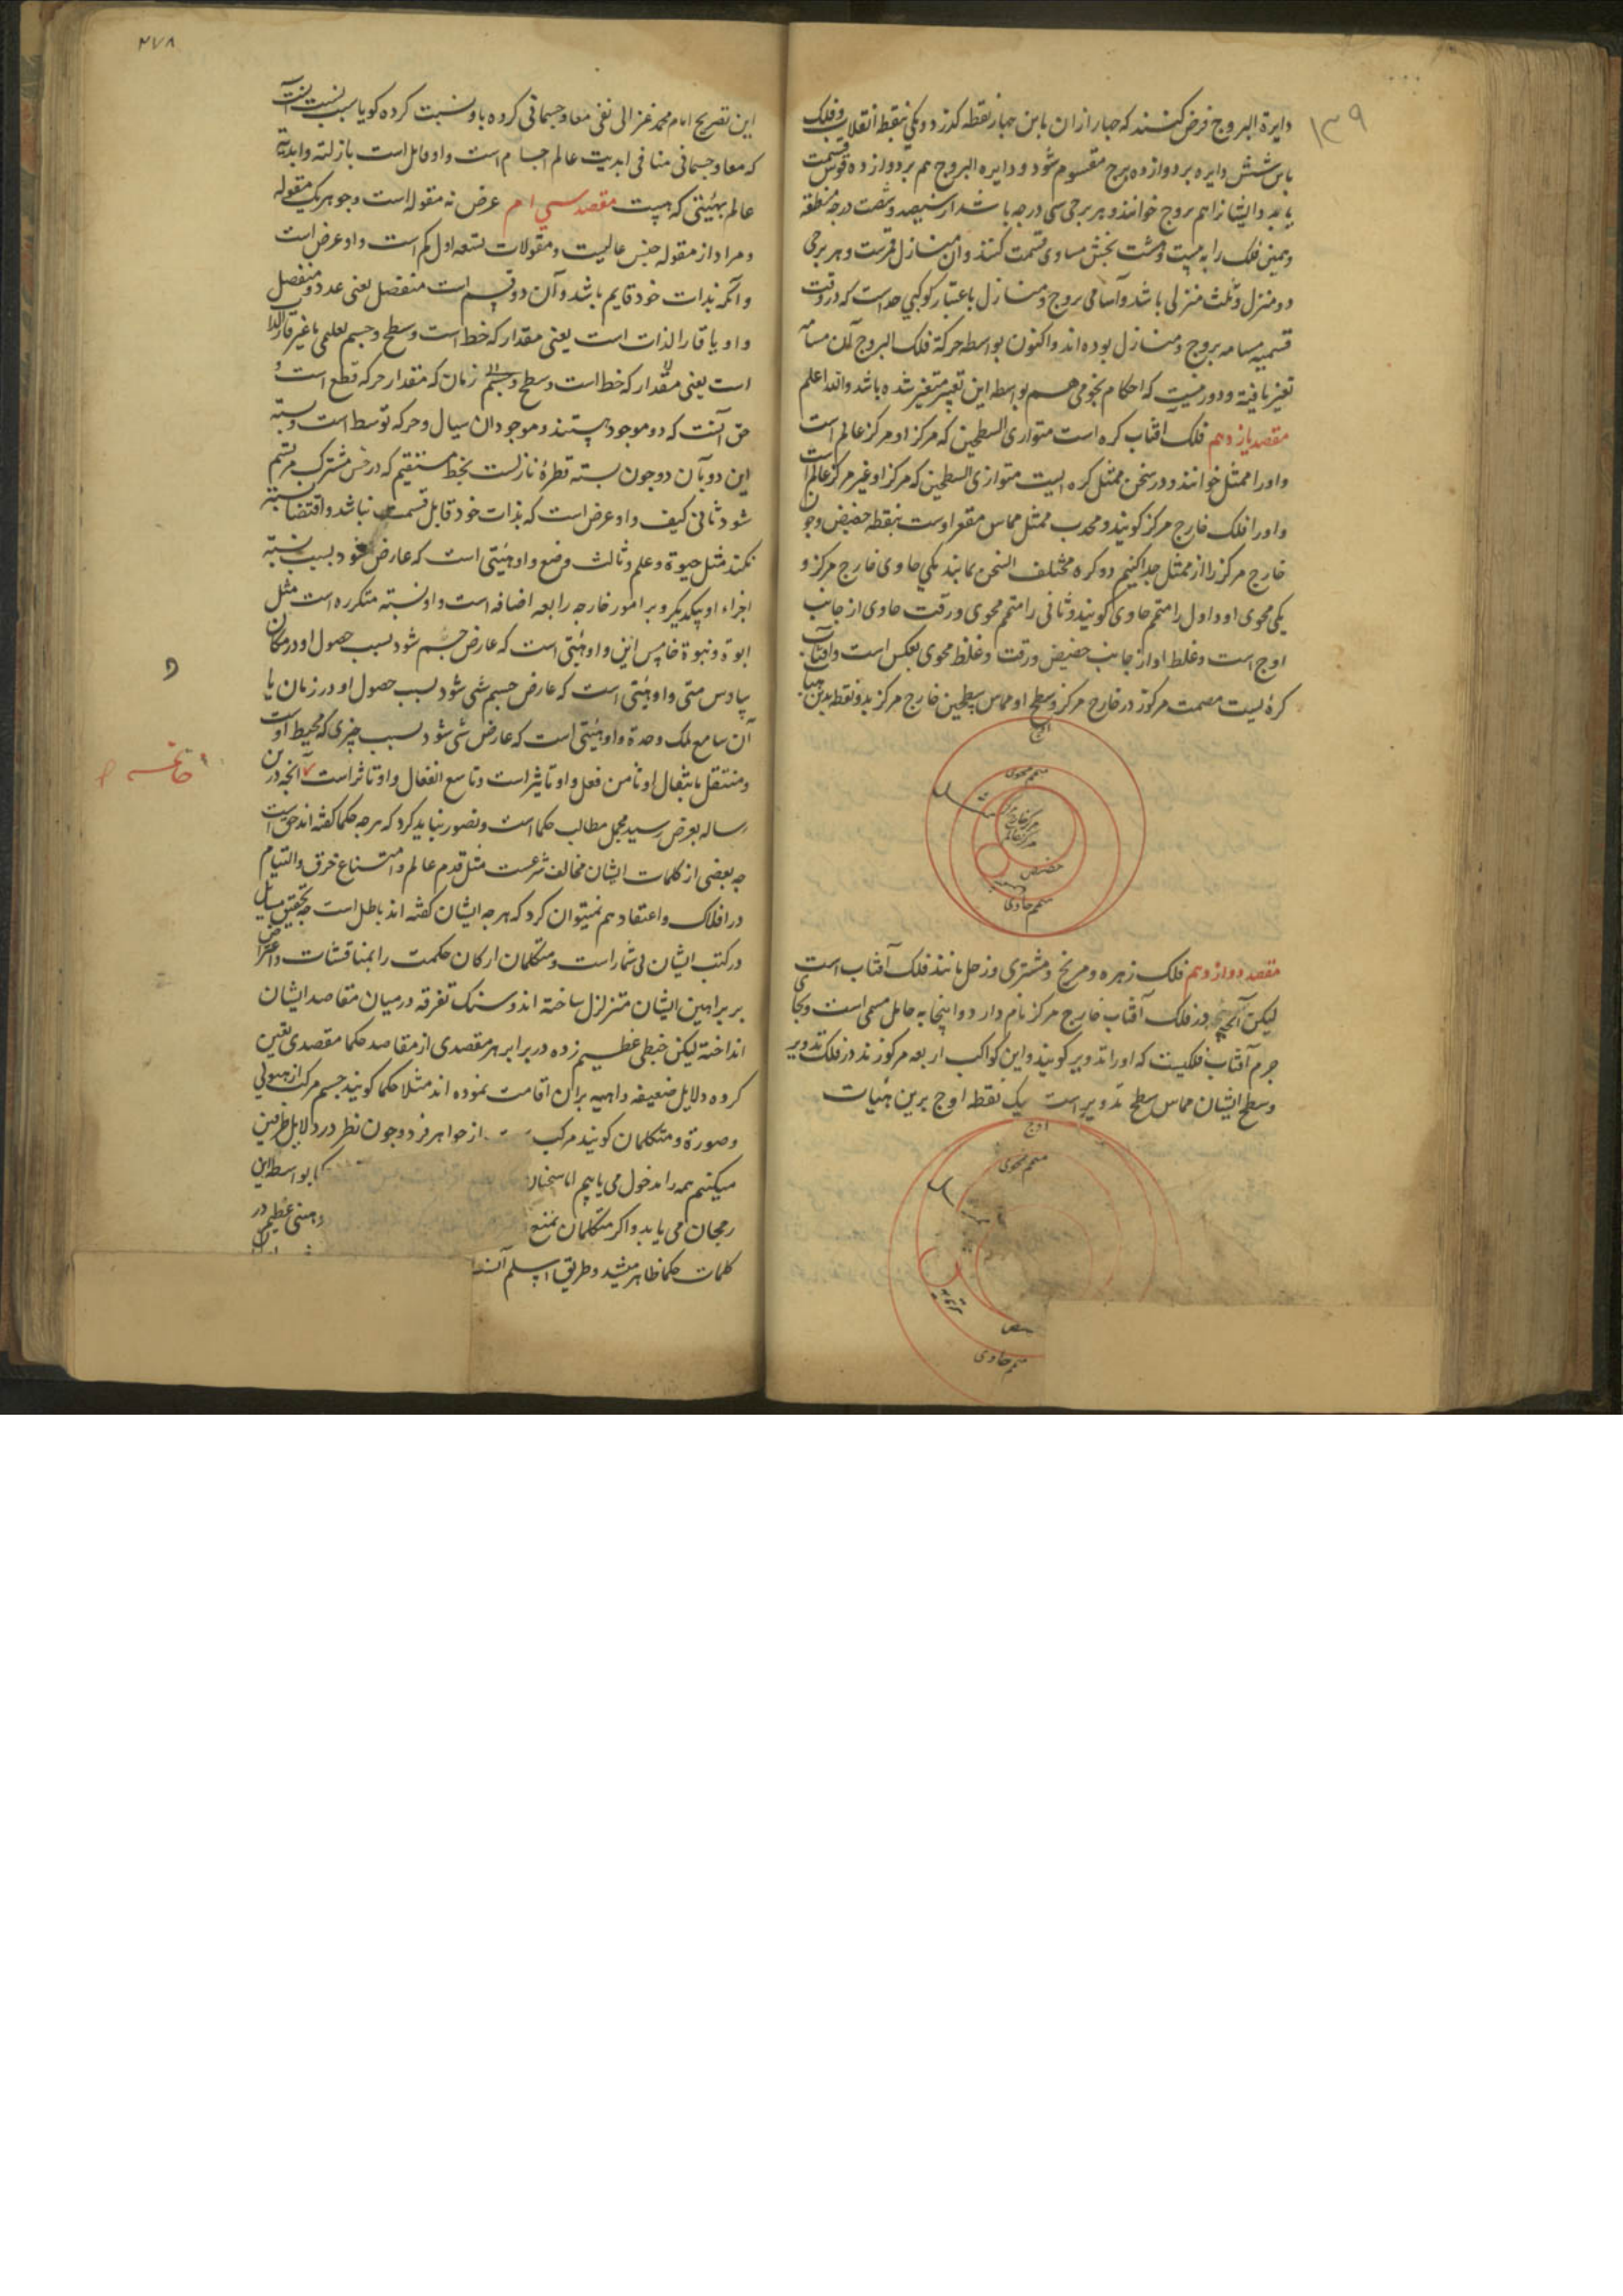 ۱۳۹
دایرة البروج فرض کنند که چهار ازان باین چهار نقطه گذرد و یکی بنقطه انقلاب و فلک
باین شش دایره بر دوازده برج مقسوم شود و دایره البروج هم بر دوازده قوس قسمت
یابد و ایشانرا هم بروج خوانند و هر برجی سی درجه باشد از سیصد و شصت درجه منطقه
و همین فلک را به بیست و هشت بخش مساوی قسمت کنند و آن منازل قمرست و هر برجی
دو منزل و ثلث منزلی باشد و اسامی بروج و منازل باعتبار کوکبی چند است که در وقت
تسمیه مسامته بروج و منازل بوده اند و اکنون بواسطه حرکة فلک البروج آن مسامته
تغیر یافته و دور نیست که احکام نجومی هم بواسطه این تغییر متغیر شده باشد والله اعلم
مقصد یازدهم فلک افتاب کره است متوازی السطحین که مرکز او مرکز عالم است
و او را ممثل خوانند و در ثخن ممثل کره ایست متوازی السطحین که مرکز او غیر مرکز عالم است
و او را فلک خارج مرکز گویند و محدب ممثل مماس مقعر اوست بنقطه حضیض و چون
خارج مرکز را از ممثل جدا کنیم دو کره مختلف الثخن بماند یکی حاوی خارج مرکز و
یکی محوی او و اول را متمم حاوی گویند و ثانی را متمم محوی و رقت حاوی از جانب
اوج است و غلظ او از جانب حضیض و رقت و غلظ محوی بعکس است و افتاب
کره ایست مصمت مرکوز در خارج مرکز و سطح او مماس سطحین خارج مرکز بدو نقطه بدین هیات
اوج
متمم محوی
مرکز خارج
مرکز عالم
حضیض
متمم حاوی
مقصد دوازدهم فلک زهره و مریخ و مشتری و زحل مانند فلک آفتاب است
لیکن آنچه در فلک آفتاب خارج مرکز نام دارد و اینجا به حامل مسمی است و بجای
جرم آفتاب فلکیست که او را تدویر گویند و این کواکب اربعه مرکوزند در فلک تدویر
و سطح ایشان مماس سطح تدویر است بیک نقطه اوج برین هیات
اوج
متمم محوی
تدویر
متمم حاوی
۲۷۸
این تصریح امام محمد غزالی نفی معاد جسمانی کرده باو نسبت کرده گویا سبب نسبت آنست
که معاد جسمانی منافی ابدیت عالم اجسام است و او قایل است بازلیة و ابدیة
عالم بهیئتی که هست مقصد سی ام عرض نه مقوله است و جوهر یک مقوله
و مراد از مقوله جنس عالیست و مقولات تسعه اول کم است و او عرض است
و آنکه بذات خود قایم باشد و آن دو قسم است منفصل یعنی عدد و متصل
و او یا قار الذات است یعنی مقدار که خط است و سطح و جسم تعلیمی یا غیر قار الذات
است یعنی مقدار که خط است و سطح و جسم زمان که مقدار حرکه قطع است و
حق آنست که دو موجود نیستند و موجود آن سیال و حرکه توسط است و نسبة
این دو بآن دو چون نسبة قطرۀ نازلست بخط مستقیم که در حس مشترک مرتسم
شود ثانی کیف و او عرض است که بذات خود قابل قسمت نباشد و اقتضا نسبة
نکند مثل حیوة و علم و ثالث وضع و او هیئتی است که عارض شود بسبب نسبة
اجزاء او بیکدیگر و بر امور خارجه رابعه اضافه است و او نسبة متکرره است مثل
ابوة و نبوة خامس این و او هیئتی است که عارض جسم شود بسبب حصول او در مکان
سادس متی و او هیئتی است که عارض جسم شی شود بسبب حصول او در زمان یا
آن سابع ملک و حدة و او هیئتی است که عارض شی شود بسبب چیزی که محیط اوست
و منتقل بانتقال او ثامن فعل و او تاثیر است و تاسع انفعال و او تاثر است آنچه درین
خاتمه
رساله بعرض رسید مجمل مطالب حکما است و تصور نباید کرد که هرچه حکما گفته اند حق است
چه بعضی از کلمات ایشان مخالف شرعست مثل قدم عالم و امتناع خرق و التیام
در افلاک و اعتقاد هم نمیتوان کرد که هرچه ایشان گفته اند باطل است چه تحقیق مسایل
در کتب ایشان بی شمار است و متکلمان ارکان حکمت را بمناقشات و اعتراض
بر براهین ایشان متزلزل ساخته اند و سنک تفرقه در میان مقاصد ایشان
انداخته لیکن خبطی عظیم زده در برابر هر مقصدی از مقاصد حکما مقصدی تعین
کرده و دلایل ضعیفه واهیه بران اقامت نموده اند مثلا حکما گویند جسم مرکب از هیولی
و صورة و متکلمان گویند مرکب از جواهر فرد و چون نظر در دلایل طرفین
میکنیم همه را مدخول می یابیم اما سخنان بواسطه این
رجحان می یابد و اگر متکلمان بمنع عظیم در
کلمات حکما ظاهر میشد و طریق اسلم آن